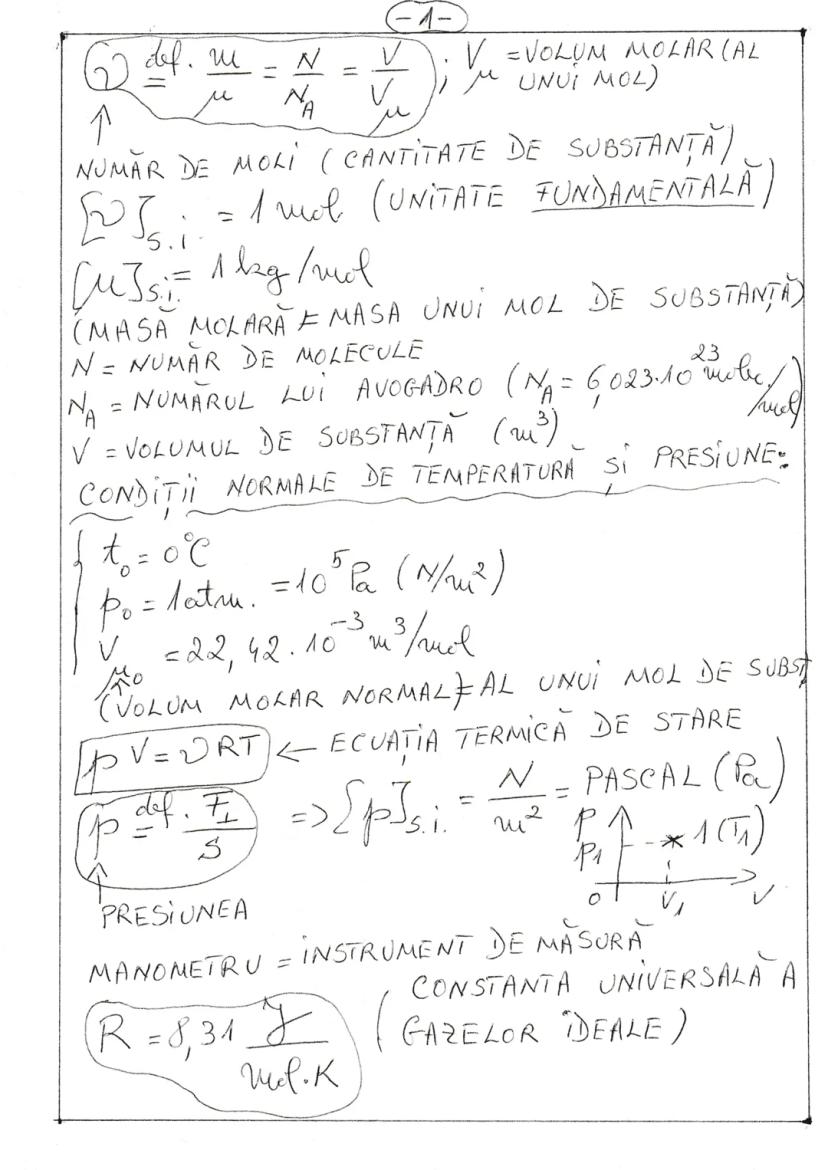 -1-
ν def. = m/μ = N/N_A = V/V_μ ; V_μ = VOLUM MOLAR (AL UNUI MOL)
NUMĂR DE MOLI (CANTITATE DE SUBSTANȚĂ)
[ν]_S.i. = 1 mol (UNITATE FUNDAMENTALĂ)
[μ]_S.i. = 1 kg/mol
(MASĂ MOLARĂ) = MASA UNUI MOL DE SUBSTANȚĂ)
N = NUMĂR DE MOLECULE
N_A = NUMĂRUL LUI AVOGADRO (N_A = 6,023·10^23 molec./mol)
V = VOLUMUL DE SUBSTANȚĂ (m³)
CONDIȚII NORMALE DE TEMPERATURĂ ȘI PRESIUNE:
{ t₀ = 0°C
p₀ = 1 atm. = 10^5 Pa (N/m²)
V_μ₀ = 22,42·10^-3 m³/mol
(VOLUM MOLAR NORMAL) = AL UNUI MOL DE SUBST
pV = νRT ← ECUAȚIA TERMICĂ DE STARE
p def. = F⊥/S => [p]_S.i. = N/m² = PASCAL (Pa)
p
p₁ 1(T₁)
0 V₁ V
PRESIUNEA
MANOMETRU = INSTRUMENT DE MĂSURĂ
R = 8,31 J/mol·K (CONSTANTA UNIVERSALĂ A
GAZELOR IDEALE)